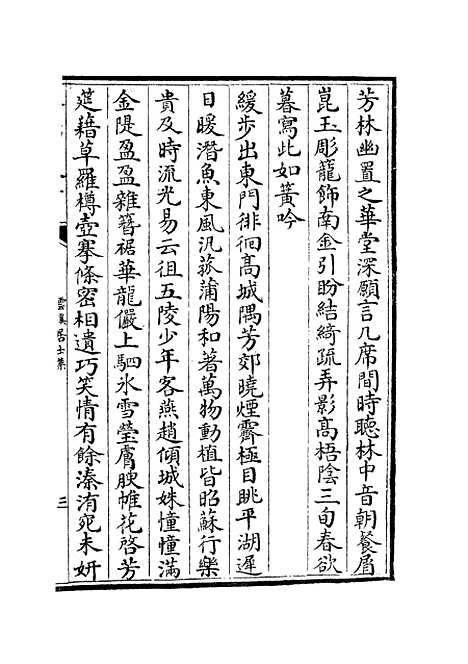 芳林幽置之華堂深願言几席間時聽林中音朝餐屑
崑玉彫籠飾南金引盼結綺疏弄影髙梧陰三旬春欲
暮寫此如簧吟
緩步出東門徘徊髙城隅芳郊曉煙霽極目眺平湖遲
日暖潛魚東風汎菰蒲陽和著萬物動植皆昭蘇行樂
貴及時流光易云徂五陵少年客燕趙傾城姝憧憧滿
金隄盈盈雜簪裾華龍儼上駟氷雪瑩膚腴帷花啓芳
筵藉草羅樽壺搴條密相遺巧笑情有餘溱洧宛未妍
雲巢居士集
三